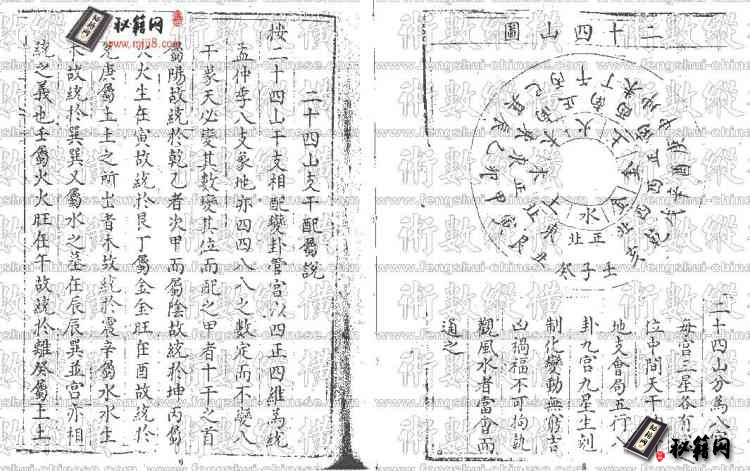 二十四山圖
二十四山分為八
每宮三星各有
位中間天干
地支會局五行八
卦九宮九星生剋
制化變動無窮吉
凶禍福不可拘執
觀風水者當會而
通之
火
正
南
金
水
正
北
壬子癸
丑艮寅
甲卯乙
辰巽巳
丙午丁
未坤申
庚酉辛
戌乾亥
二十四山支干配屬説
按二十四山干支相配變卦管宮以四正四維為統
孟仲季八支象地亦四四八八之數定而不變八
干象天必變其數變其位而配之甲者十干之首
屬陽故統於乾乙者次甲而屬陰故統於坤丙屬
火火生在寅故統於艮丁屬金金旺在酉故統於
庚屬土土之所出者未故統於震辛屬水水生
故統於巽巽又屬水之墓在辰辰巽並宮亦相
統之義也壬屬火火旺在午故統於離癸屬土土
秘籍网
www.mij8.com
秘籍网
術數縱橫
www.fengshui-chinese.com